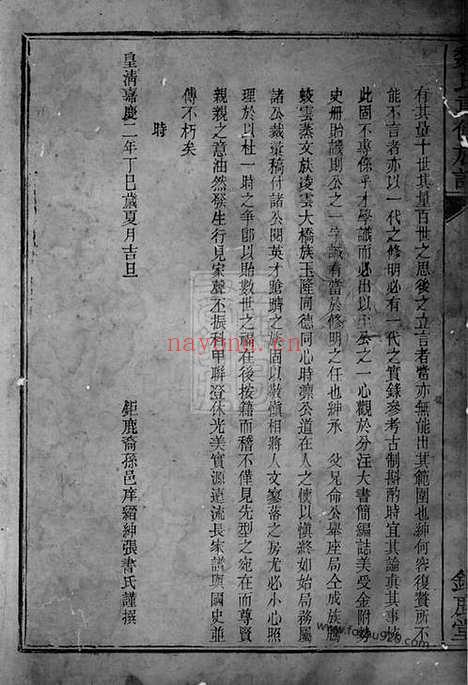 有其量十世其量百世之思後之立言者當亦無能出其範圍也紳何容復贅所不
能不言者亦以一代之修明必有一代之實錄參考古制斟酌時宜其論真其事核
此固不專係乎才學識而必出以至公之一心觀於分注大書簡編誌美受金附勢
史冊貽譏則公之一字誠有當於修明之任也紳承 父兄命公舉座局仝成族騰
蛟雲蒸文族凌雲大橋族玉陞同德同心時凛公道在人之懐以慎終如始局務屬
諸公裁彙稿付諸公閱英才蹌蹌之族固以敦嶺相將人文寥落之房尤必小心照
理於以杜一時之爭即以貽數世之福往後按籍而稽不僅見先型之宛在而尊賢
親親之意油然發生行見家聲丕振科甲聯登休光美實源遠流長家譜與國史並
傳不朽矣
時
皇清嘉慶二年丁巳歲夏月吉旦
鉅鹿裔孫邑庠 紳張書氏謹撰
鉅鹿堂
nayong.com